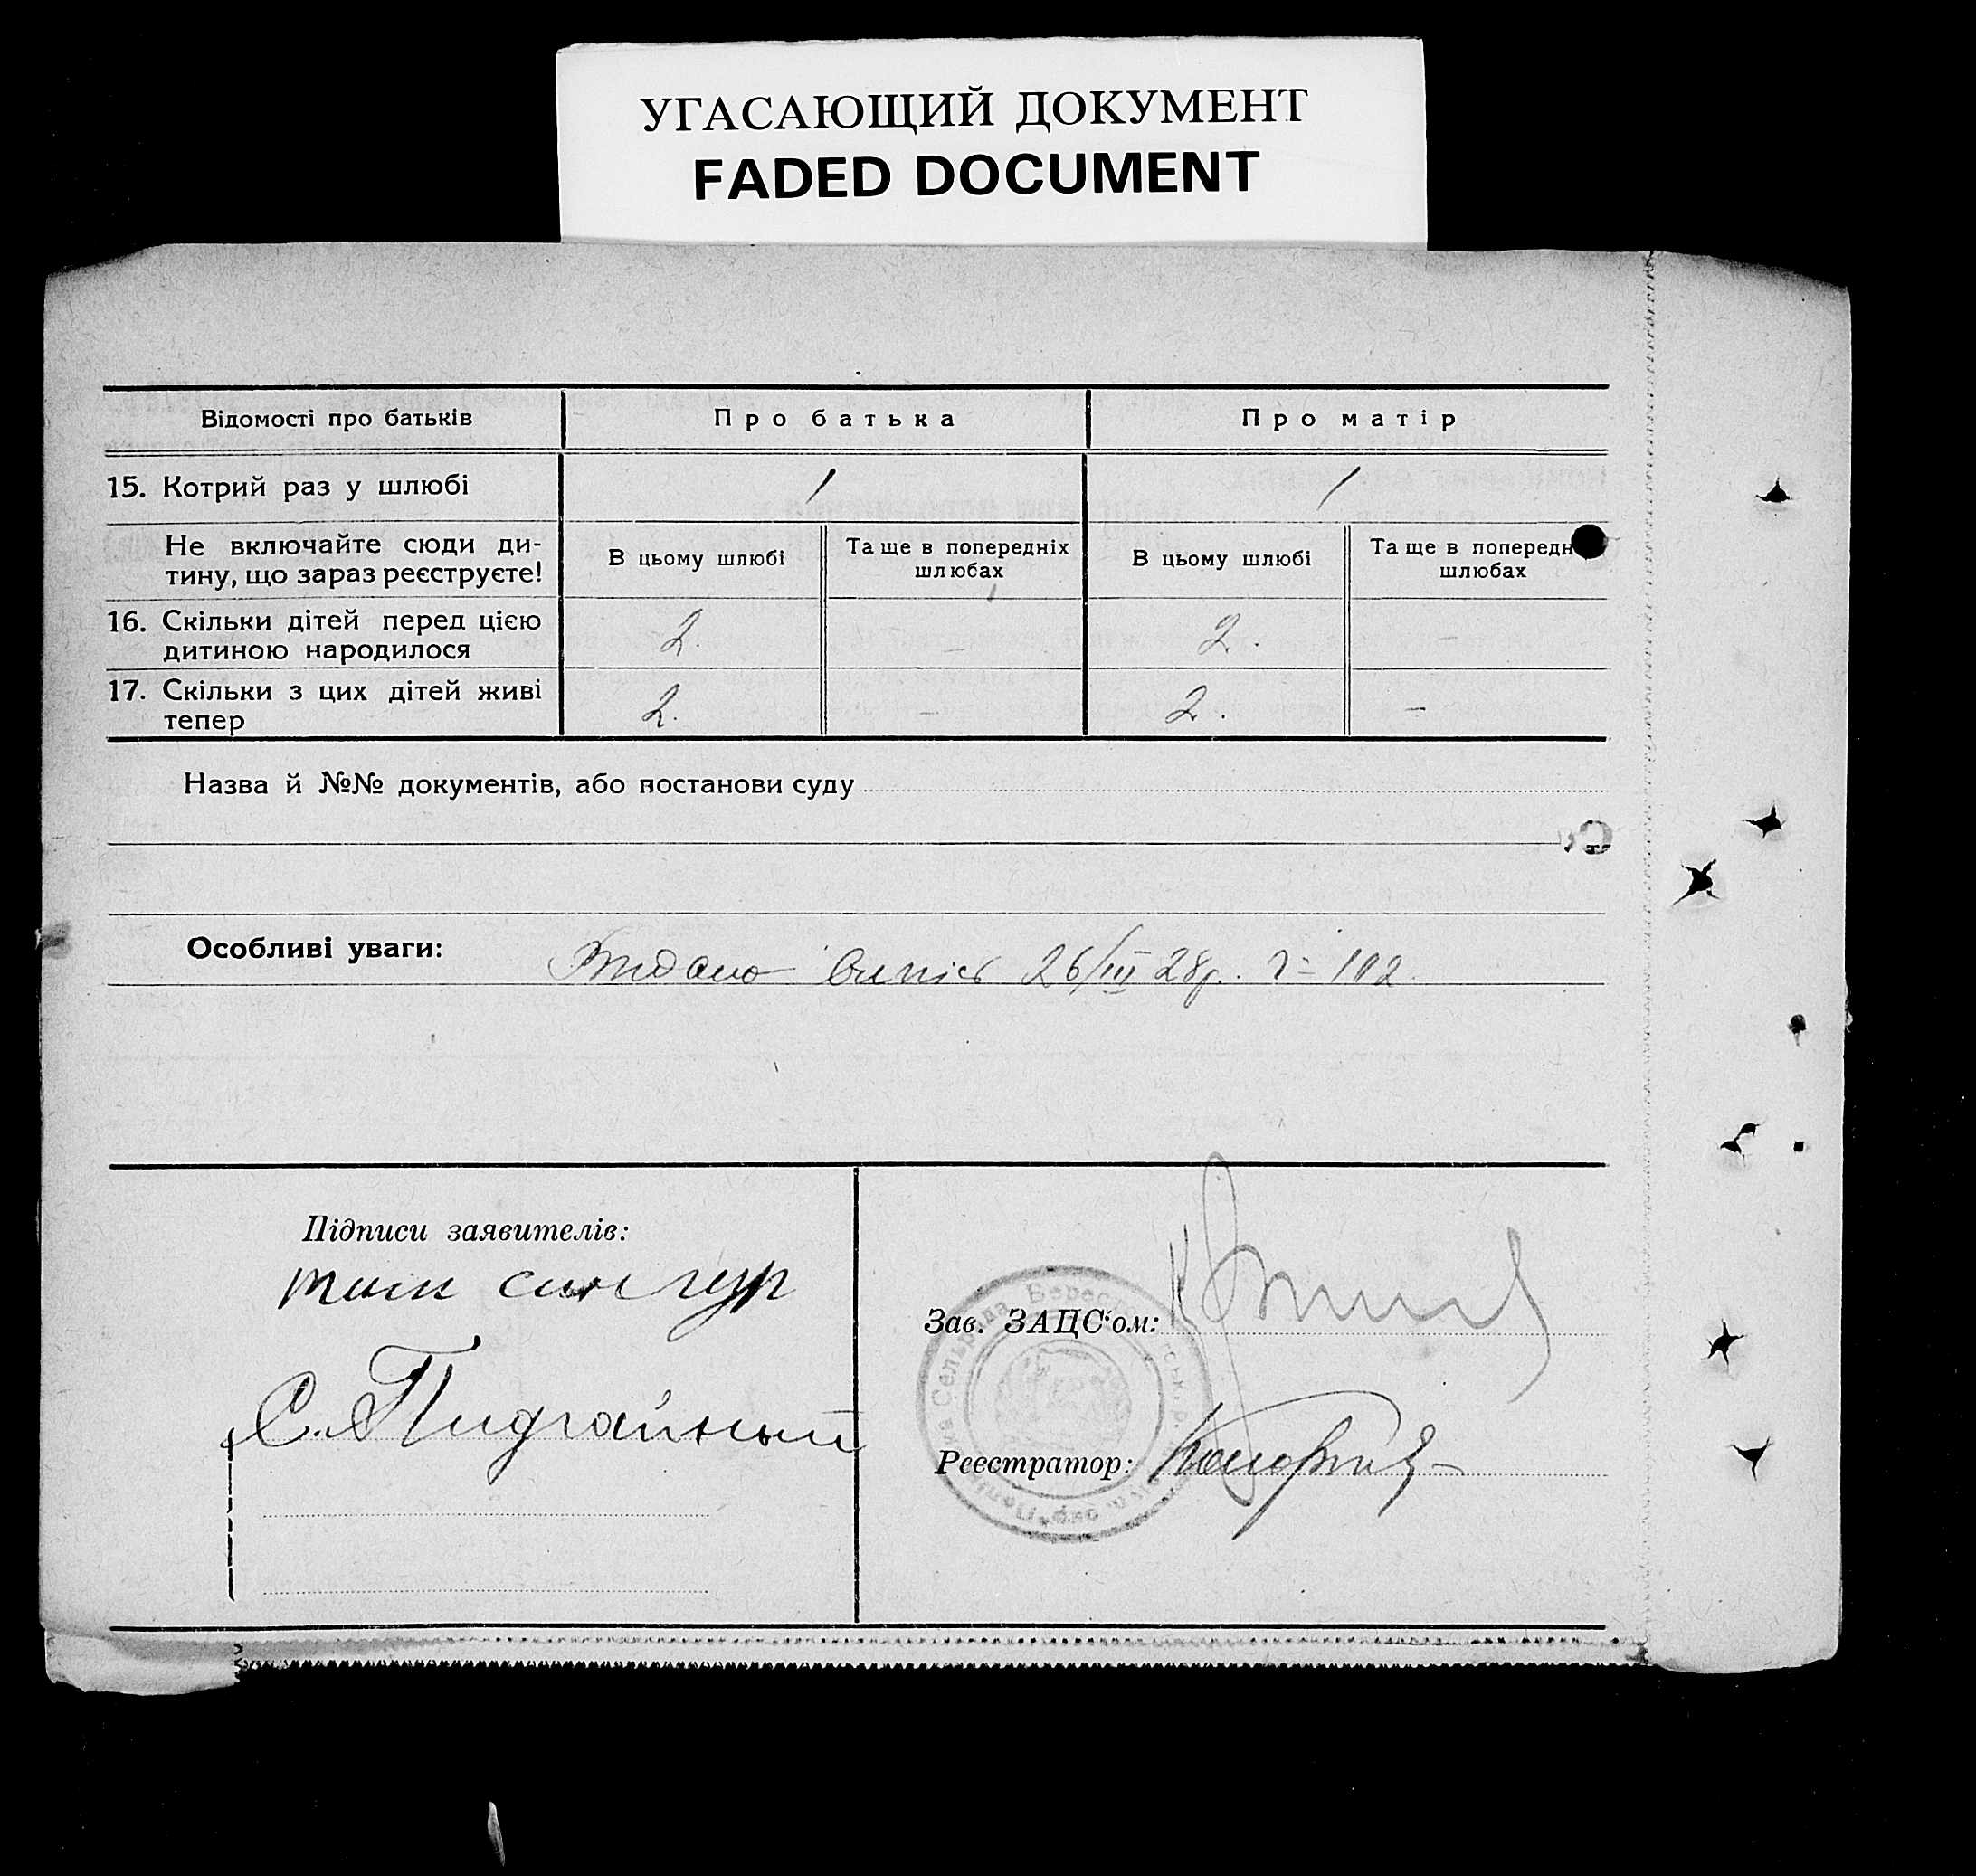 УГАСАЮЩИЙ ДОКУМЕНТ
FADED DOCUMENT
Відомості про батьків Про батька Про матір
15. Котрий раз у шлюбі 1 1
Не включайте сюди ди-
тину, що зараз реєструєте!
В цьому шлюбі
Та ще в попередніх
шлюбах
В цьому шлюбі
Та ще в попередн
шлюбах
16. Скільки дітей перед цією
дитиною народилося
2. – 2. –
17. Скільки з цих дітей живі
тепер
2. – 2. –
Назва й №№ документів, або постанови суду
Особливі уваги: Видано випис 26/III 28р. 102
Підписи заявителів:
сингур
С. Пидгайный
Зав. ЗАЦС'ом:
Реєстратор: